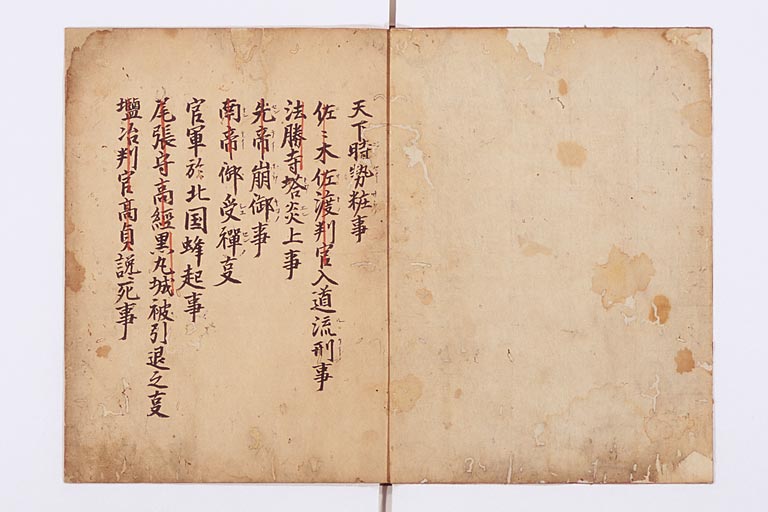 天下時勢粧事
佐〻木佐渡判官入道流刑事
法勝寺塔炎上事
先帝崩御事
南帝御受禪叓
官軍於北国蜂起事
尾張守高經黒丸城被引退之叓
塩冶判官髙貞説死事